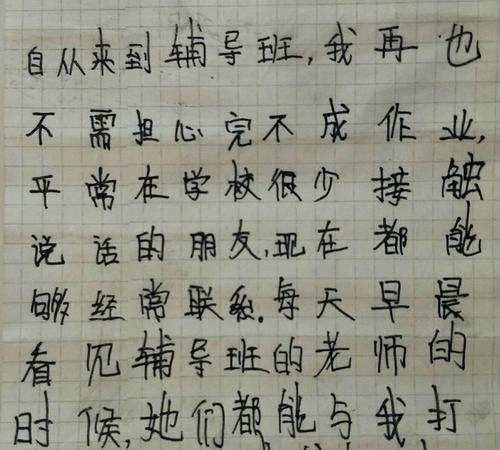 自从来到辅导班,我再也
不需担心完不成作业,
平常在学校很少接触
说话的朋友,现在都能
够经常联系。每天早晨
看见辅导班的老师的
时候,她们都能与我打